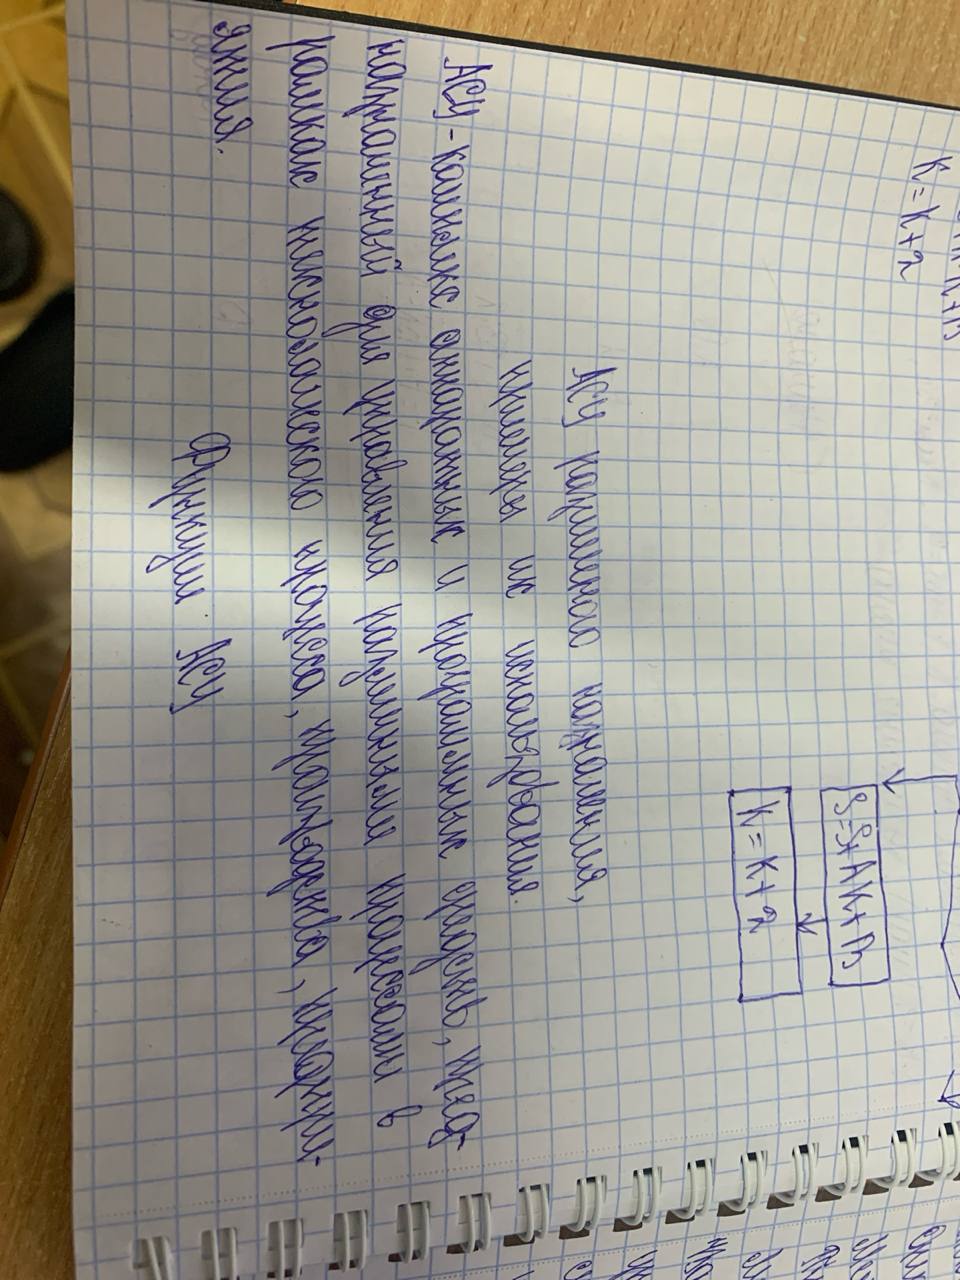 K = K + 2
S=S+AK+B
K = K + 2
АСУ различного назначения,
примеры их использования.
АСУ - комплекс аппаратных и программных средств, пред-
назначенный для управления различными процессами в
рамках технологического процесса, производства, предпри-
ятия.
Функции АСУ